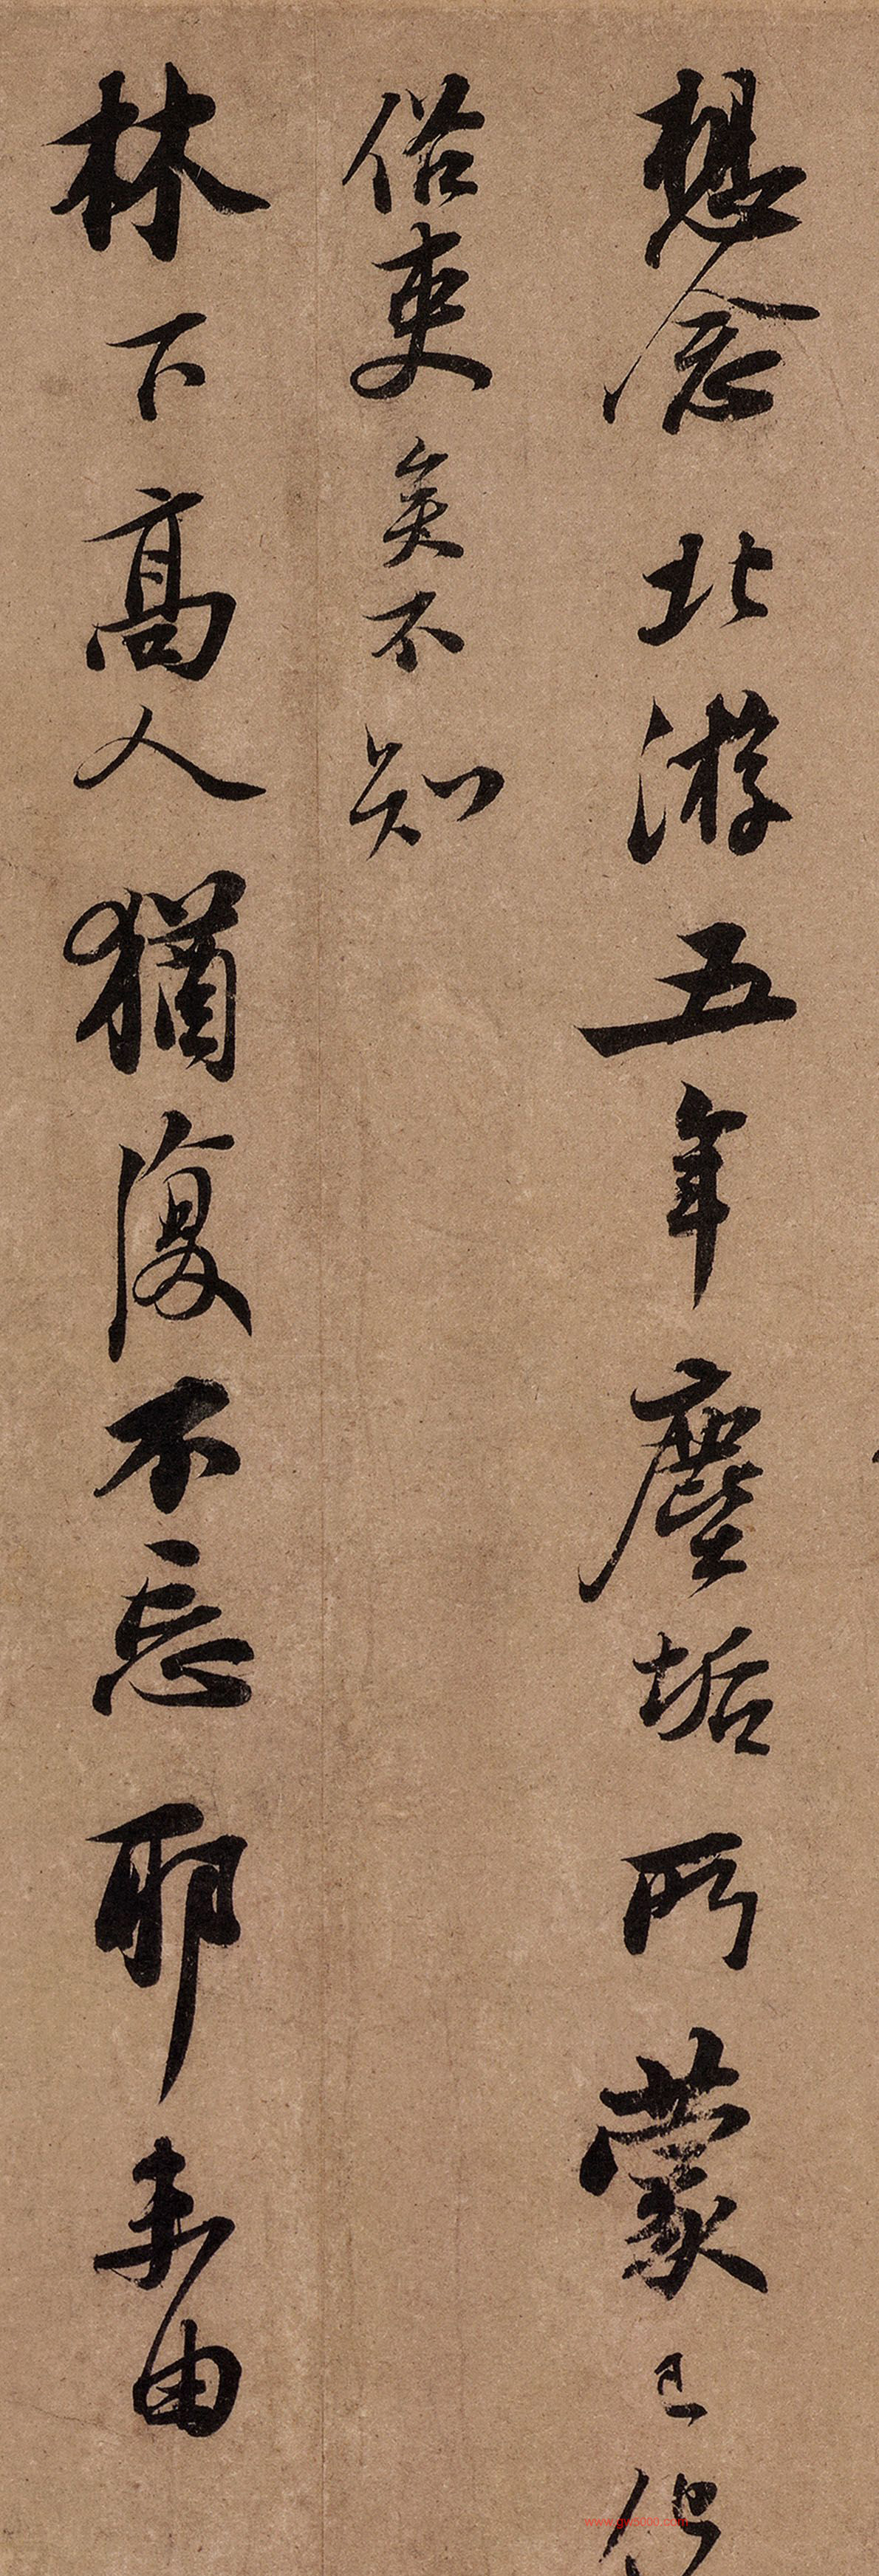 想念北游五年塵垢所蒙已化
俗吏矣不知
林下高人猶復不忘耶未由